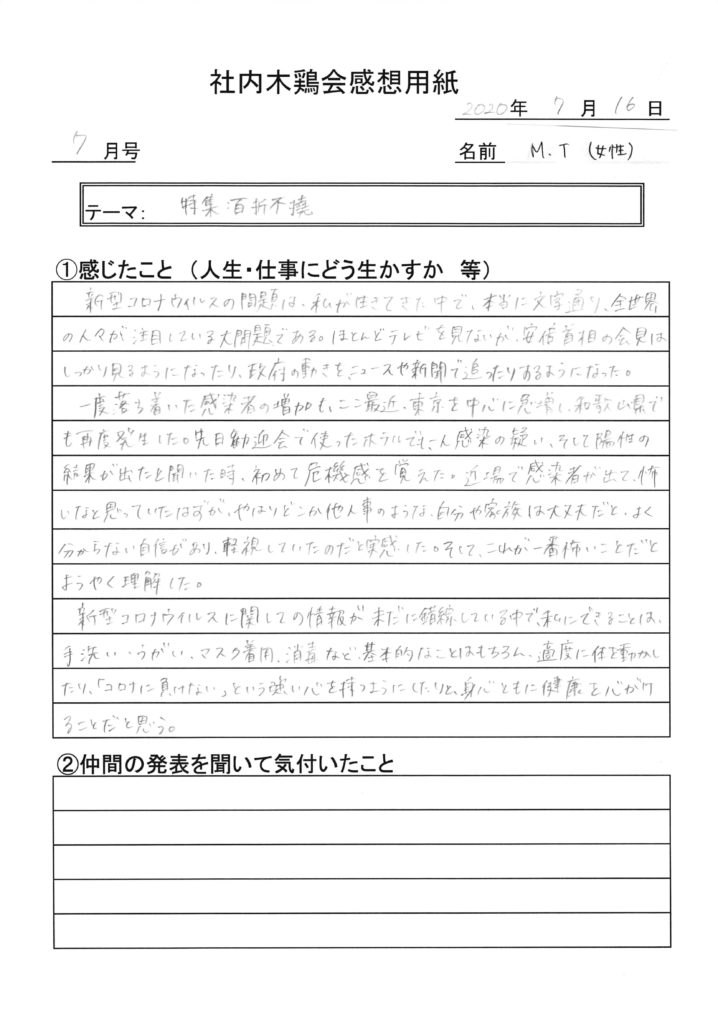 社内木鶏会感想用紙
2020年 7月 16日
7 月号
名前 M.T (女性)
テーマ: 特集:百折不撓
①感じたこと (人生・仕事にどう生かすか 等)
新型コロナウィルスの問題は、私が生きてきた中で、本当に文字通り、全世界
の人々が注目している大問題である。ほとんどテレビを見ないが、安倍首相の会見は
しっかり見るようになったり、政府の動きを、ニュースや新聞で追ったりするようになった。
一度落ち着いた感染者の増加も、ここ最近、東京を中心に急増し、和歌山県で
も再度発生した。先日歓迎会で使ったホテルでも、一人感染の疑い、そして陽性の
結果が出たと聞いた時、初めて危機感を覚えた。近場で感染者が出て、怖
いなと思っていたはずが、やはりどこか他人事のような、自分や家族は大丈夫だと、よく
分からない自信があり、軽視していたのだと実感した。そして、これが一番怖いことだと
ようやく理解した。
新型コロナウィルスに関しての情報が未だに錯綜している中で、私にできることは、
手洗い・うがい、マスク着用、消毒など、基本的なことはもちろん、適度に体を動かし
たり、「コロナに負けない」という強い心を持つようにしたりと、身心ともに健康を心がけ
ることだと思う。
②仲間の発表を聞いて気付いたこと